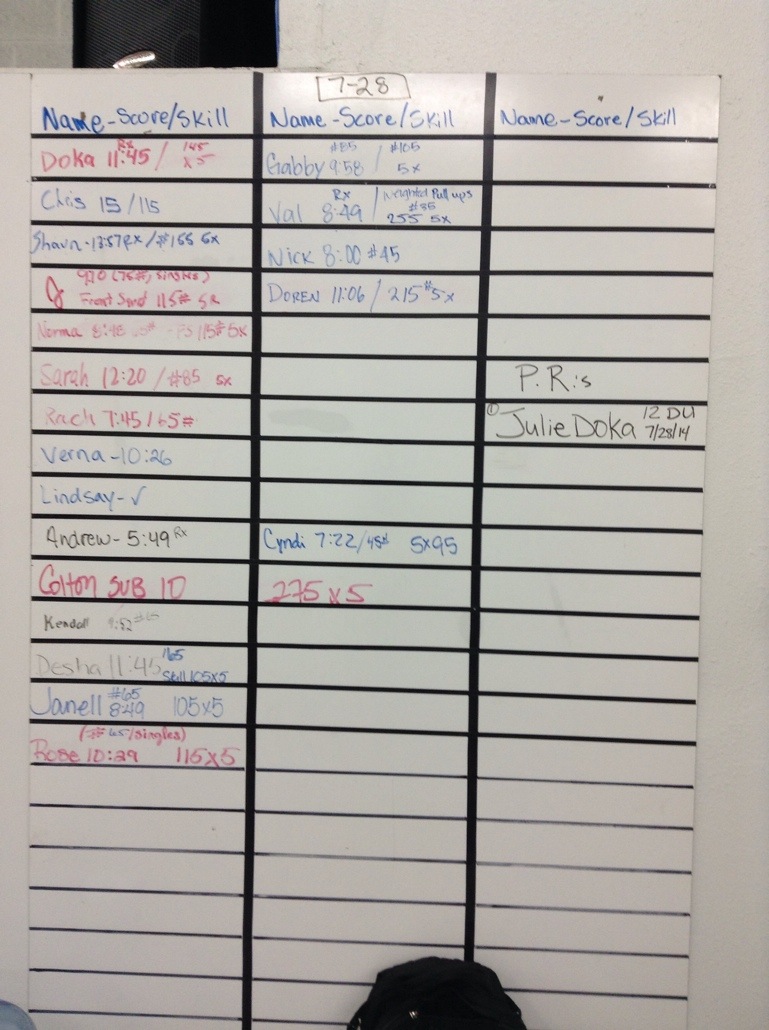 7-28
Name-Score/Skill
Name-Score/Skill
Name-Score/Skill
Doka 11:45 Rx / 145 x5
Chris 15/115
Shawn-13:57Rx/#155 5x
9:10 (75#, singles)
Front 115# 5x
Norma 115# 5x
Sarah 12:20 / #85 5x
Rach 7:45/65#
Verna-10:26
Lindsay-✓
Andrew-5:49 Rx
Colton SUB 10
Kendall
Desha 11:45 #65
Skill 105x5
Janell #65 8:49 105x5
(#65/singles)
Rose 10:29 115x5
#85 #105
Gabby 9:58 / 5x
Rx Weighted Pull ups
#35
Val 8:49 / 255 5x
Nick 8:00 #45
DOREN 11:06 / 215# 5x
Cyndi 7:22/45# 5x95
275 x 5
P.R.:s
① Julie Doka 12 DU
7/28/14